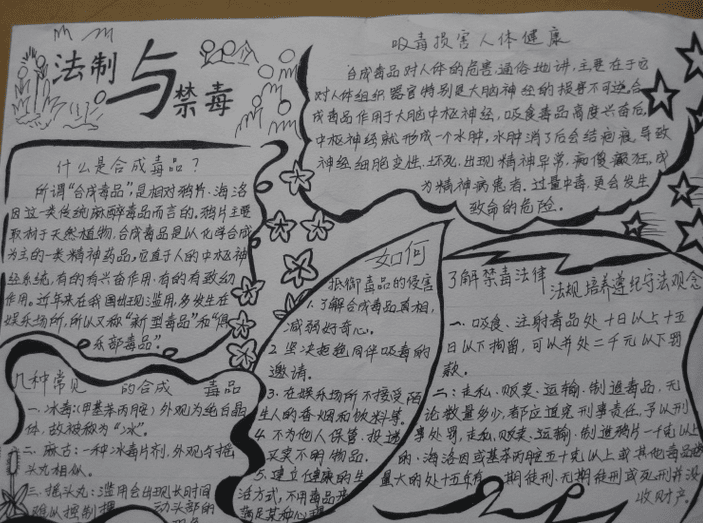 法制
与
禁毒
什么是合成毒品？
所谓“合成毒品”，是相对鸦片、海洛
因这一类传统麻醉毒品而言的。鸦片主要
取材于天然植物，合成毒品是以化学合成
为主的一类精神药品，它直于人的中枢神
经系统，有的有兴奋作用，有的有致幻
作用。近年来在我国出现滥用，多发生在
娱乐场所，所以又称“新型毒品”和“俱
乐部毒品”。
几种常见的合成毒品
一、冰毒：（甲基苯丙胺）外观为纯白晶
体，故被称为“冰”。
二、麻古：一种冰毒片剂，外观与摇
头丸相似。
三、摇头丸：滥用会出现长时间
难以控制摇动头部的
吸毒损害人体健康
合成毒品对人体的危害，通俗地讲，主要在于它
对人体组织、器官特别是大脑神经的损害不可逆，合
成毒品作用于大脑中枢神经，吸食毒品高度兴奋后，
中枢神经就形成一个水肿，水肿消了后会结疤痕，导致
神经细胞变性、坏死，出现精神异常，痴傻癫狂，成
为精神病患者。过量中毒，更会发生
致命的危险。
如何
抵御毒品的侵害
1、了解合成毒品真相，
减弱好奇心。
2、坚决拒绝同伴吸毒的
邀请。
3、在娱乐场所不接受陌
生人的香烟和饮料等。
4、不为他人保管、投递
买卖不明物品。
5、建立健康的生
活方式，不用毒品
满足某种心理
了解禁毒法律法规 培养遵纪守法观念
一、吸食、注射毒品处十日以上十五
日以下拘留，可以并处二千元以下罚
款。
二：走私、贩卖、运输、制造毒品，无
论数量多少，都应追究刑事责任，予以刑
事处罚，走私、贩卖、运输、制造鸦片一千克以上
的、海洛因或甲基苯丙胺五十克以上或其他毒品
量大的处十五年有期徒刑、无期徒刑或死刑并没
收财产。